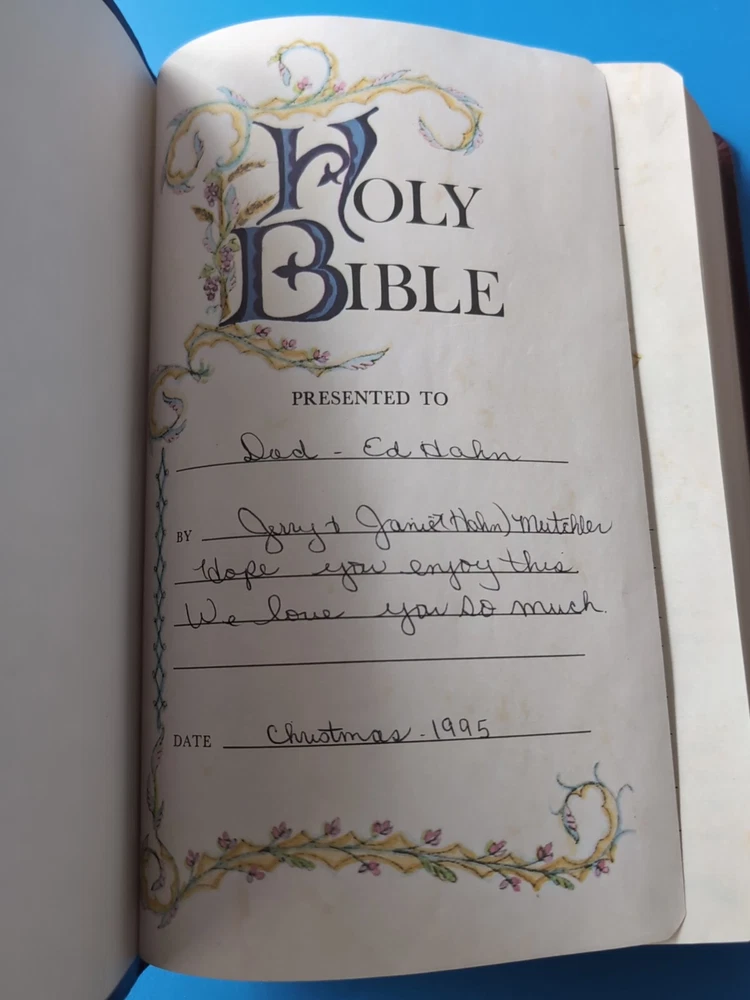 HOLY
BIBLE
PRESENTED TO
Dad - Ed Hahn
BY Jerry & Janie (Hahn) Mutchler
Hope you enjoy this
We love you so much.
DATE Christmas - 1995